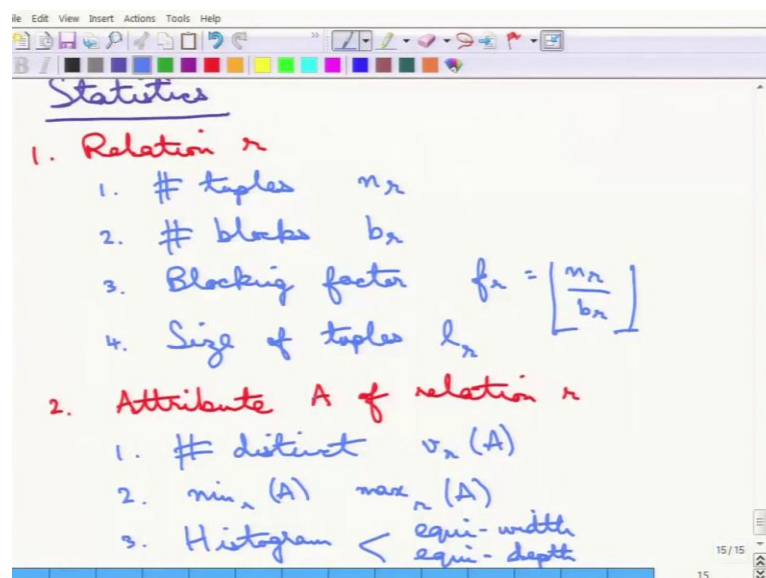 le Edit View Insert Actions Tools Help
B I
Statistics
1. Relation r
1. # tuples n_r
2. # blocks b_r
3. Blocking factor f_r = ⌊n_r / b_r⌋
4. Size of tuples l_r
2. Attribute A of relation r
1. # distinct v_r (A)
2. min_r (A) max_r (A)
3. Histogram < equi-width
equi-depth
15/15
15